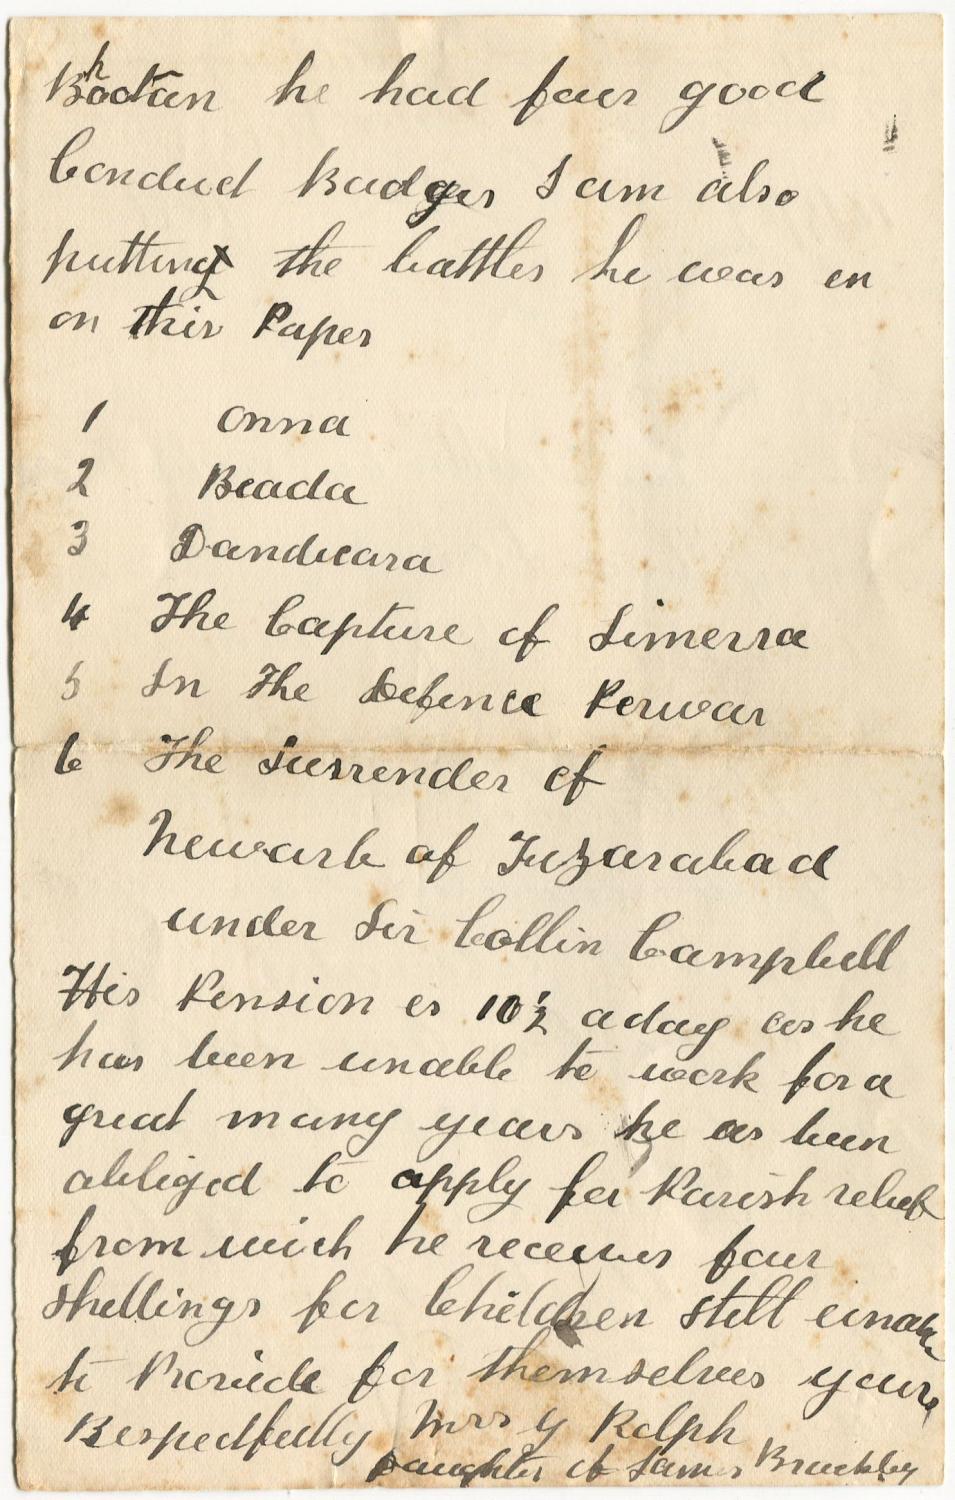 Bhootan he had four good
Conduct Badges I am also
putting the battles he was en
on this Paper
1 Onna
2 Beada
3 Dandwara
4 The Capture of Simerra
5 In The Defence Perwar
6 The Surrender of
Newark of Fuzarabad
under Sir Collin Campbell
His Pension es 10½ a day as he
has been unable to work for a
great many years he as been
abliged to apply for Parish relief
from wich he receives four
shellings for Children still unable
to Provide for themselves yours
Respectfully Mrs G Rolph
Daughter of James Bruckley